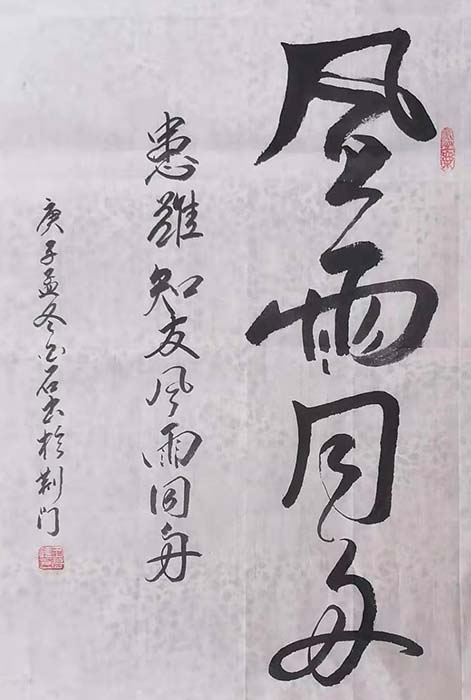 风雨同舟
患难知友风雨同舟
庚子孟冬白石书于荆门